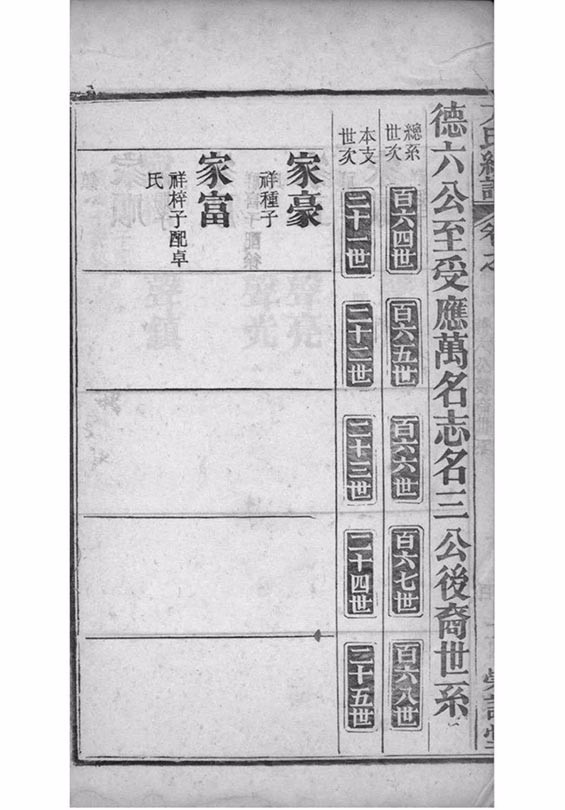 德六公至受應萬名志名三公後裔世系
總系世次
百六四世
百六五世
百六六世
百六七世
百六八世
本支世次
二十一世
二十二世
二十三世
二十四世
二十五世
家豪
祥種子
家富
祥梓子配卓
氏